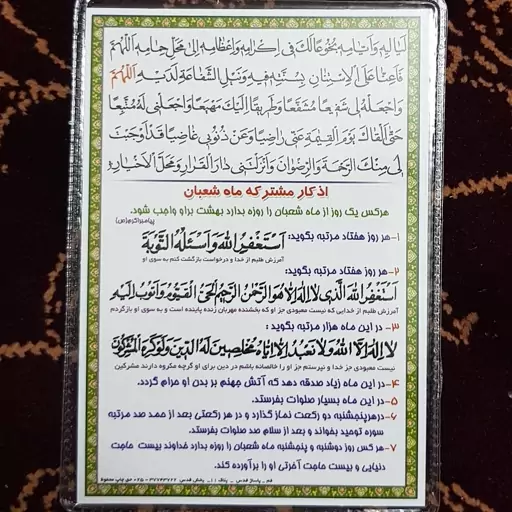 لَيَالِيهِ وَاَيَّامِهِ بُخُوعًا لَكَ فِى اِكْرَامِهِ وَاِعْظَامِهِ اِلىٰ مَحَلِّ حِمَامِهِ اَللّٰهُمَّ
فَاَعِنَّا عَلَى الْاِسْتِنَانِ بِسُنَّتِهِ فِيهِ وَنَيْلِ الشَّفَاعَةِ لَدَيْهِ اَللّٰهُمَّ
وَاجْعَلْهُ لِى شَفِيعًا مُشَفَّعًا وَطَرِيقًا اِلَيْكَ مَهْيَعًا وَاجْعَلْنِى لَهُ مُتَّبِعًا
حَتّٰى اَلْقَاكَ يَوْمَ الْقِيٰمَةِ عَنِّى رَاضِيًا وَعَنْ ذُنُوبِى غَاضِيًا قَدْ اَوْجَبْتَ
لِى مِنْكَ الرَّحْمَةَ وَالرِّضْوَانَ وَاَنْزَلْتَنِى دَارَ الْقَرَارِ وَمَحَلَّ الْاَخْيَارِ
اذکار مشترکه ماه شعبان
هرکس یک روز از ماه شعبان را روزه بدارد بهشت براو واجب شود.
پیامبراکرم(ص)
۱-هر روز هفتاد مرتبه بگوید: اَسْتَغْفِرُ اللهَ وَاَسْئَلُهُ التَّوْبَةَ
آمرزش طلبم از خدا و درخواست بازگشت کنم به سوی او
۲-هر روز هفتاد مرتبه بگوید:
اَسْتَغْفِرُ اللهَ الَّذِى لَا اِلٰهَ اِلَّا هُوَ الرَّحْمٰنُ الرَّحِيمُ الْحَىُّ الْقَيُّومُ وَاَتُوبُ اِلَيْهِ
آمرزش طلبم از خدایی که نیست معبودی جز او که بخشنده مهربان زنده پاینده است و به سوی او بازگردم
۳- در این ماه هزار مرتبه بگوید :
لَا اِلٰهَ اِلَّا اللهُ وَلَا نَعْبُدُ اِلَّا اِيَّاهُ مُخْلِصِينَ لَهُ الدِّينَ وَلَوْ كَرِهَ الْمُشْرِكُونَ
نیست معبودی جز خدا و نپرستم جز او را خالصانه باشم در دین برای او گرچه مکروه دارند مشرکین
۴- در این ماه زیاد صدقه دهد که آتش جهنم بر بدن او حرام گردد.
۵ - در این ماه بسیار صلوات بفرستد.
۶-درهرپنجشنبه دو رکعت نماز گذارد و در هر رکعتی بعد از حمد صد مرتبه
سوره توحید بخواند و بعد از سلام صد صلوات بفرستد.
۷- هر کس روز دوشنبه و پنجشنبه ماه شعبان را روزه بدارد خداوند بیست حاجت
دنیایی و بیست حاجت آخرتی او را برآورده کند.